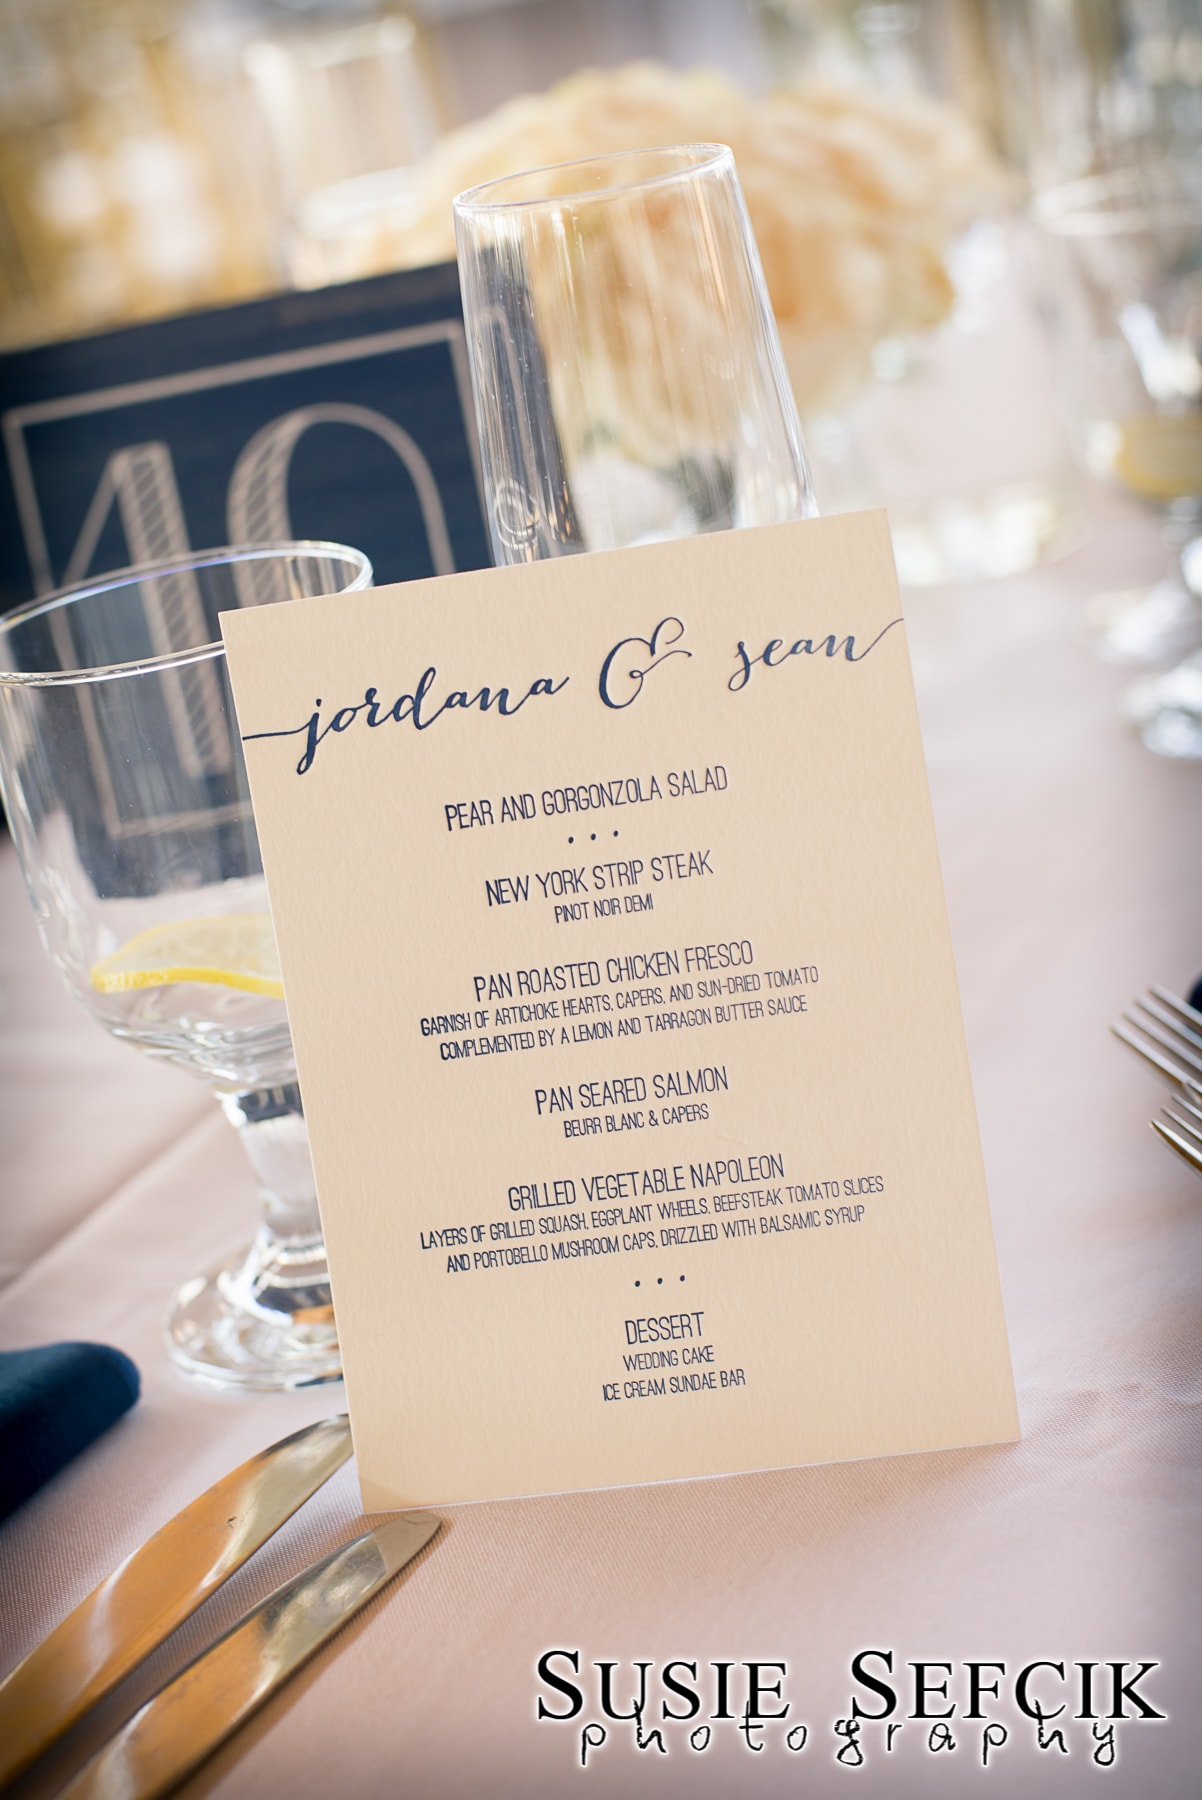 10
jordana & sean
PEAR AND GORGONZOLA SALAD
• • •
NEW YORK STRIP STEAK
PINOT NOIR DEMI
PAN ROASTED CHICKEN FRESCO
GARNISH OF ARTICHOKE HEARTS, CAPERS, AND SUN-DRIED TOMATO
COMPLEMENTED BY A LEMON AND TARRAGON BUTTER SAUCE
PAN SEARED SALMON
BEURR BLANC & CAPERS
GRILLED VEGETABLE NAPOLEON
LAYERS OF GRILLED SQUASH, EGGPLANT WHEELS, BEEFSTEAK TOMATO SLICES
AND PORTOBELLO MUSHROOM CAPS, DRIZZLED WITH BALSAMIC SYRUP
• • •
DESSERT
WEDDING CAKE
ICE CREAM SUNDAE BAR
SUSIE SEFCIK
photography